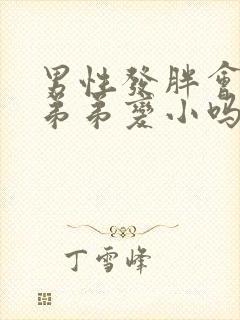 男性發胖會
弟弟變小嗎
丁雪峰